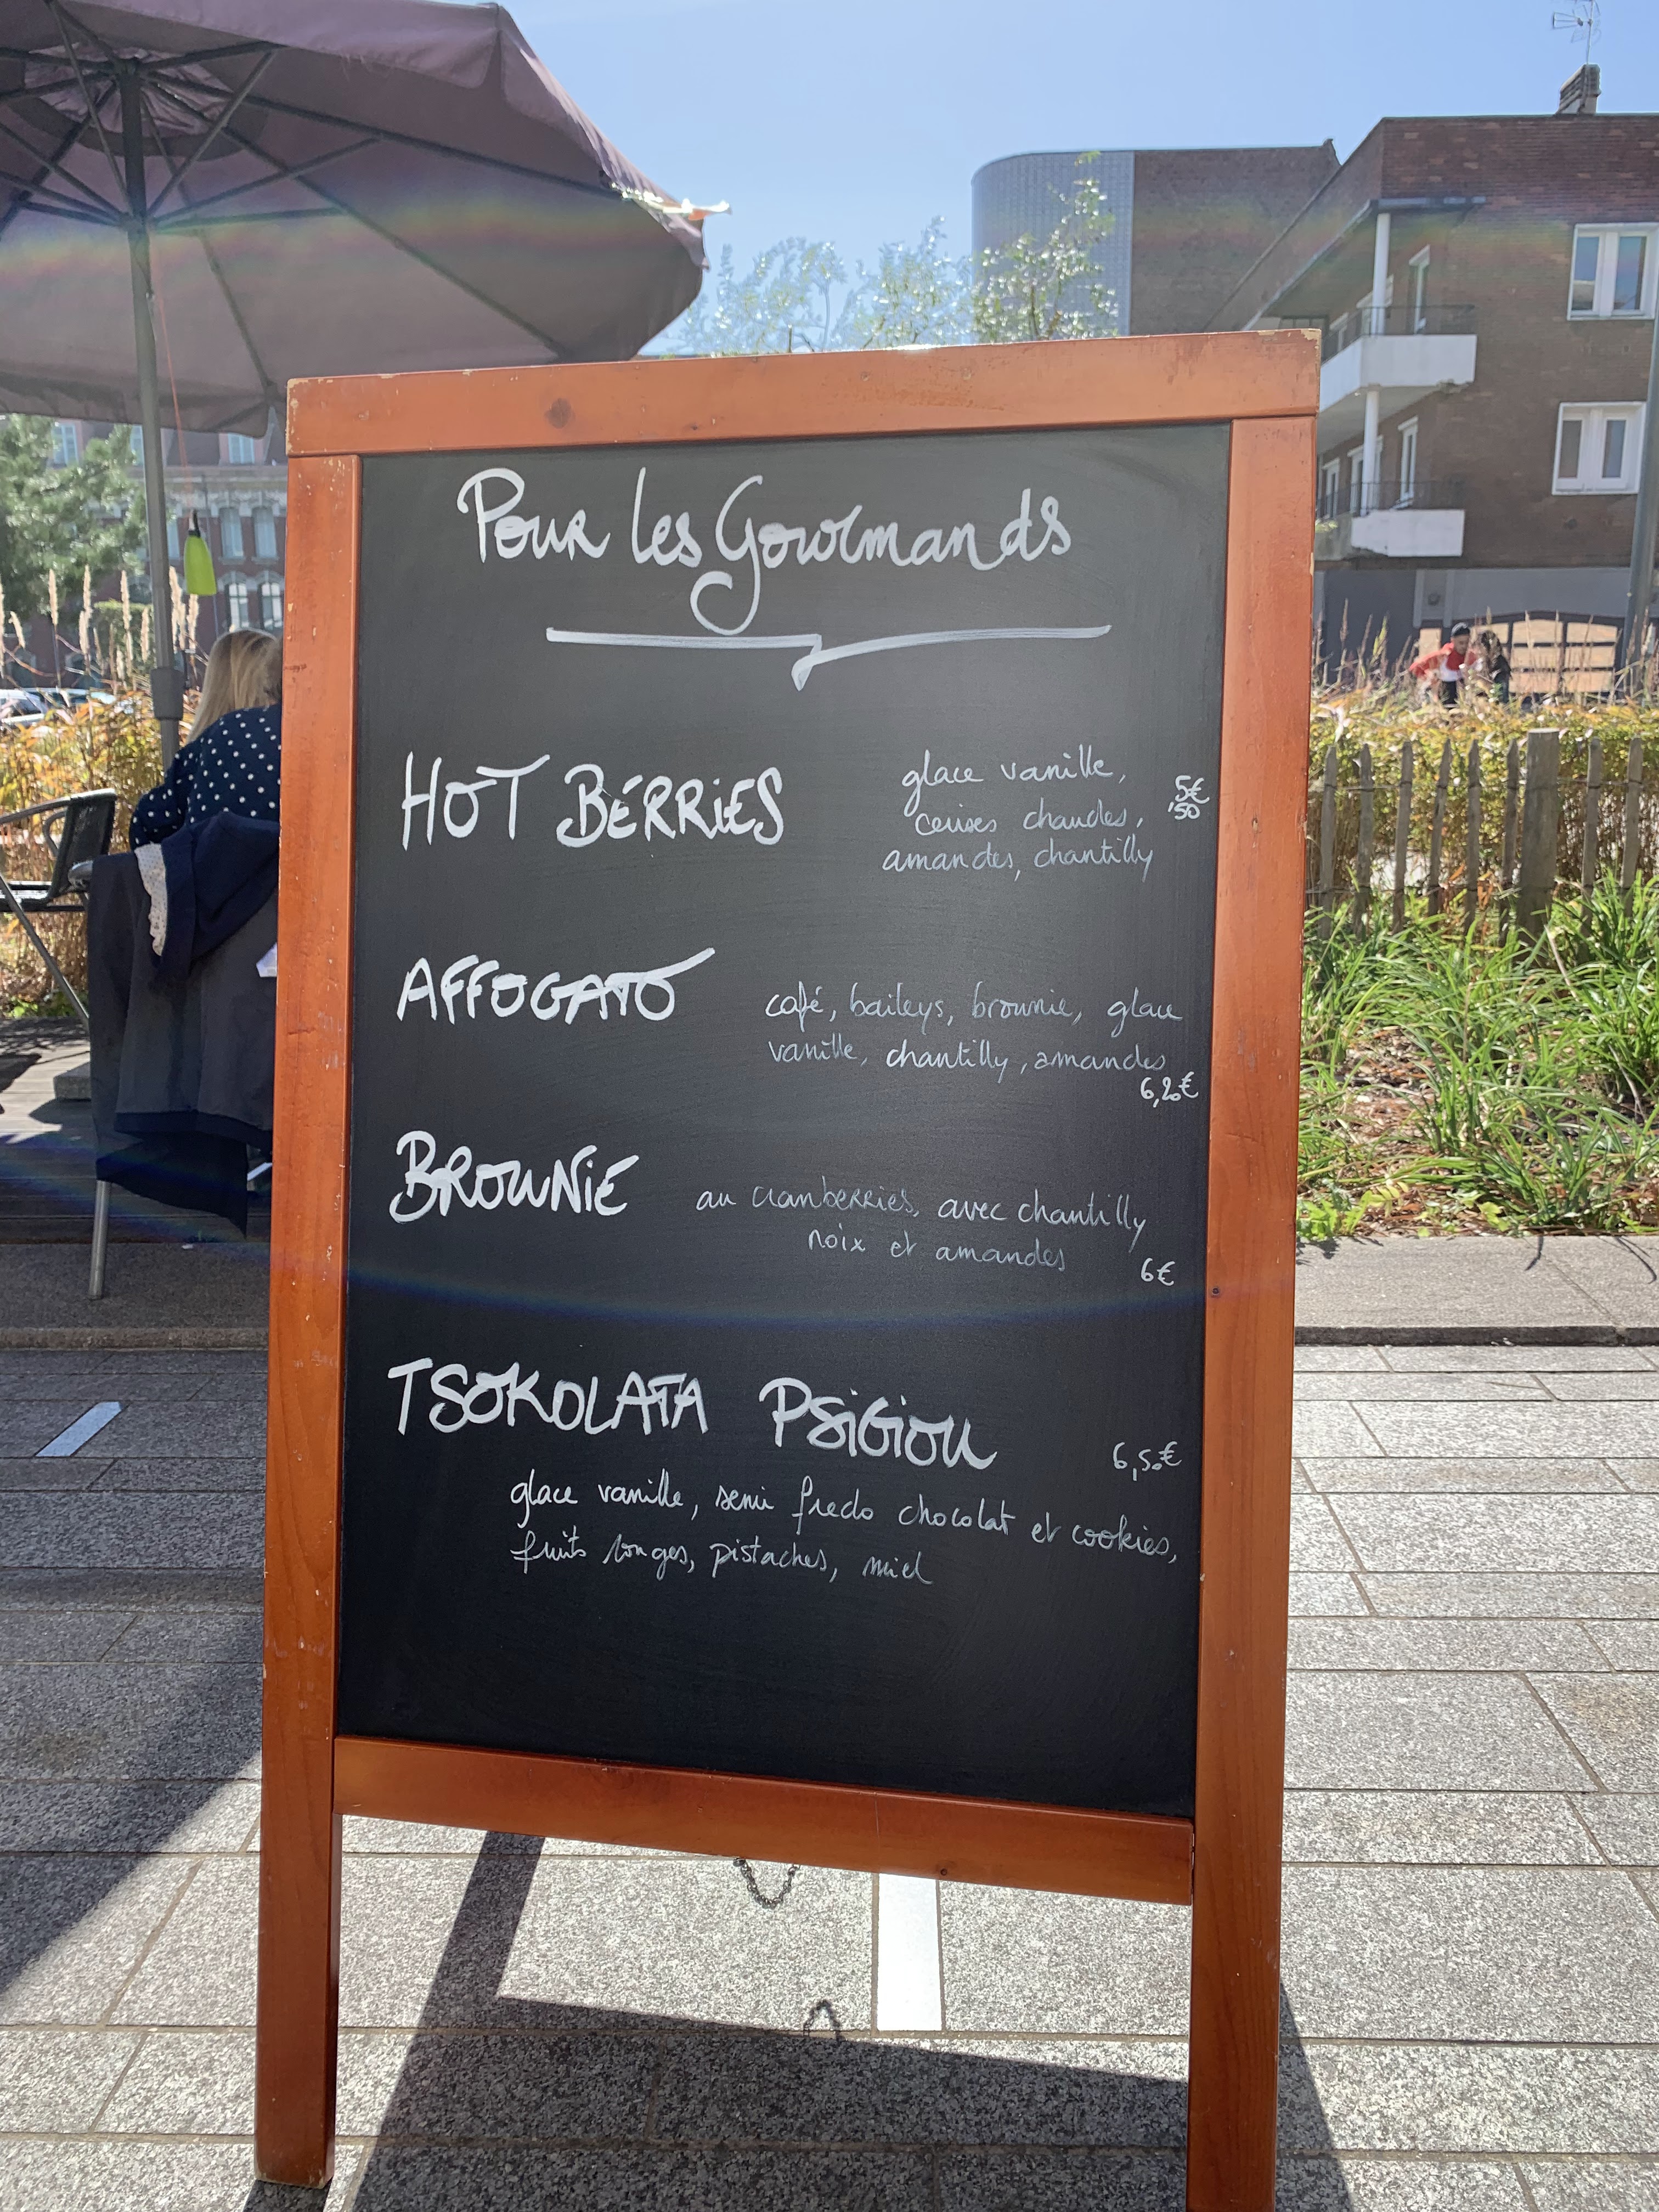 Pour les Gourmands
HOT BERRIES
glace vanille,
cerises chaudes,
amandes, chantilly
5€
,50
AFFOGATO
café, baileys, brownie, glace
vanille, chantilly, amandes
6,20€
BROWNIE
au cranberries, avec chantilly
noix et amandes
6€
TSOKOLATA PSIGIOU
6,50€
glace vanille, semi fredo chocolat et cookies,
fruits rouges, pistaches, miel